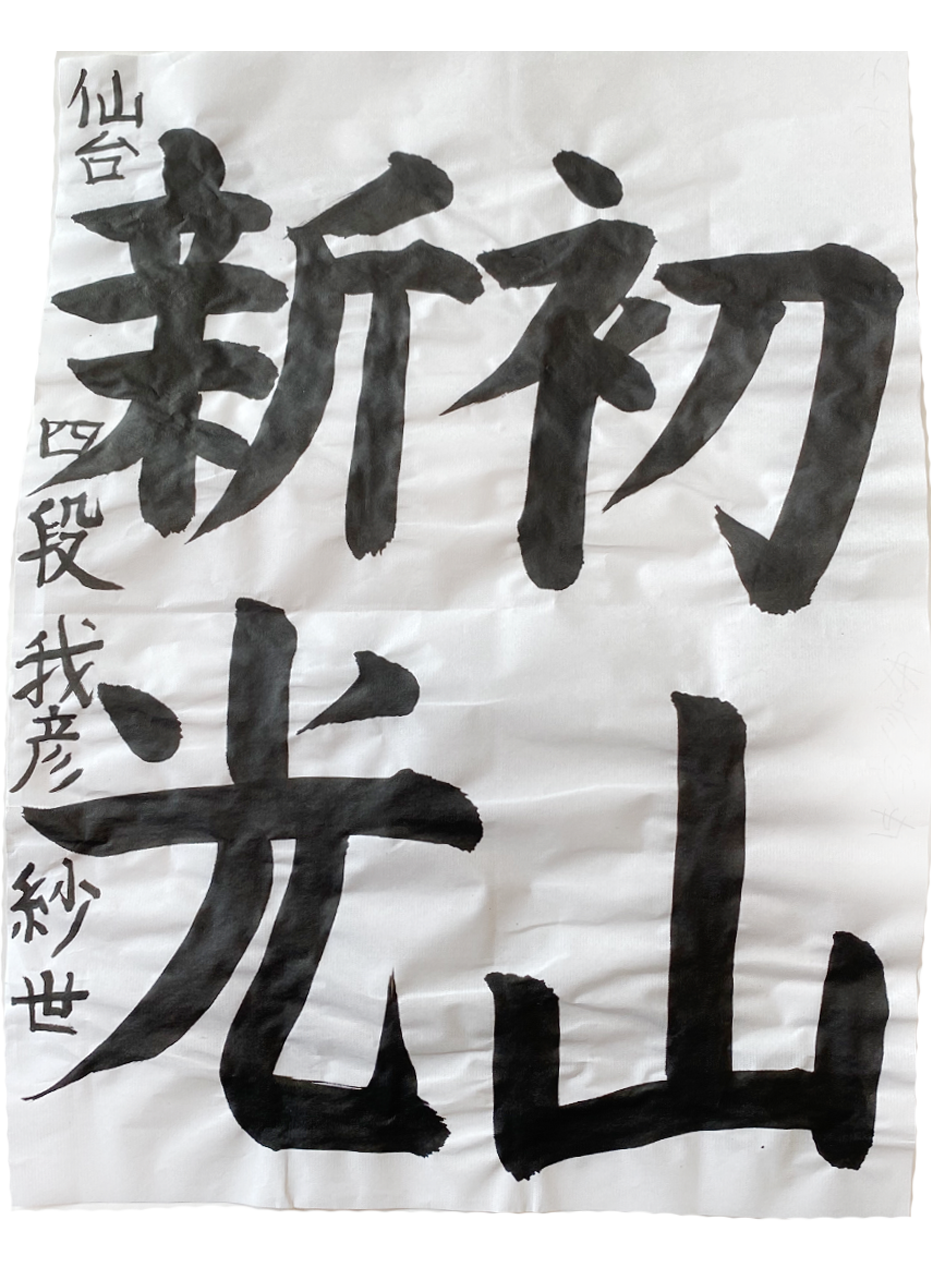 初山
新光
仙台 四段 我彦 紗世